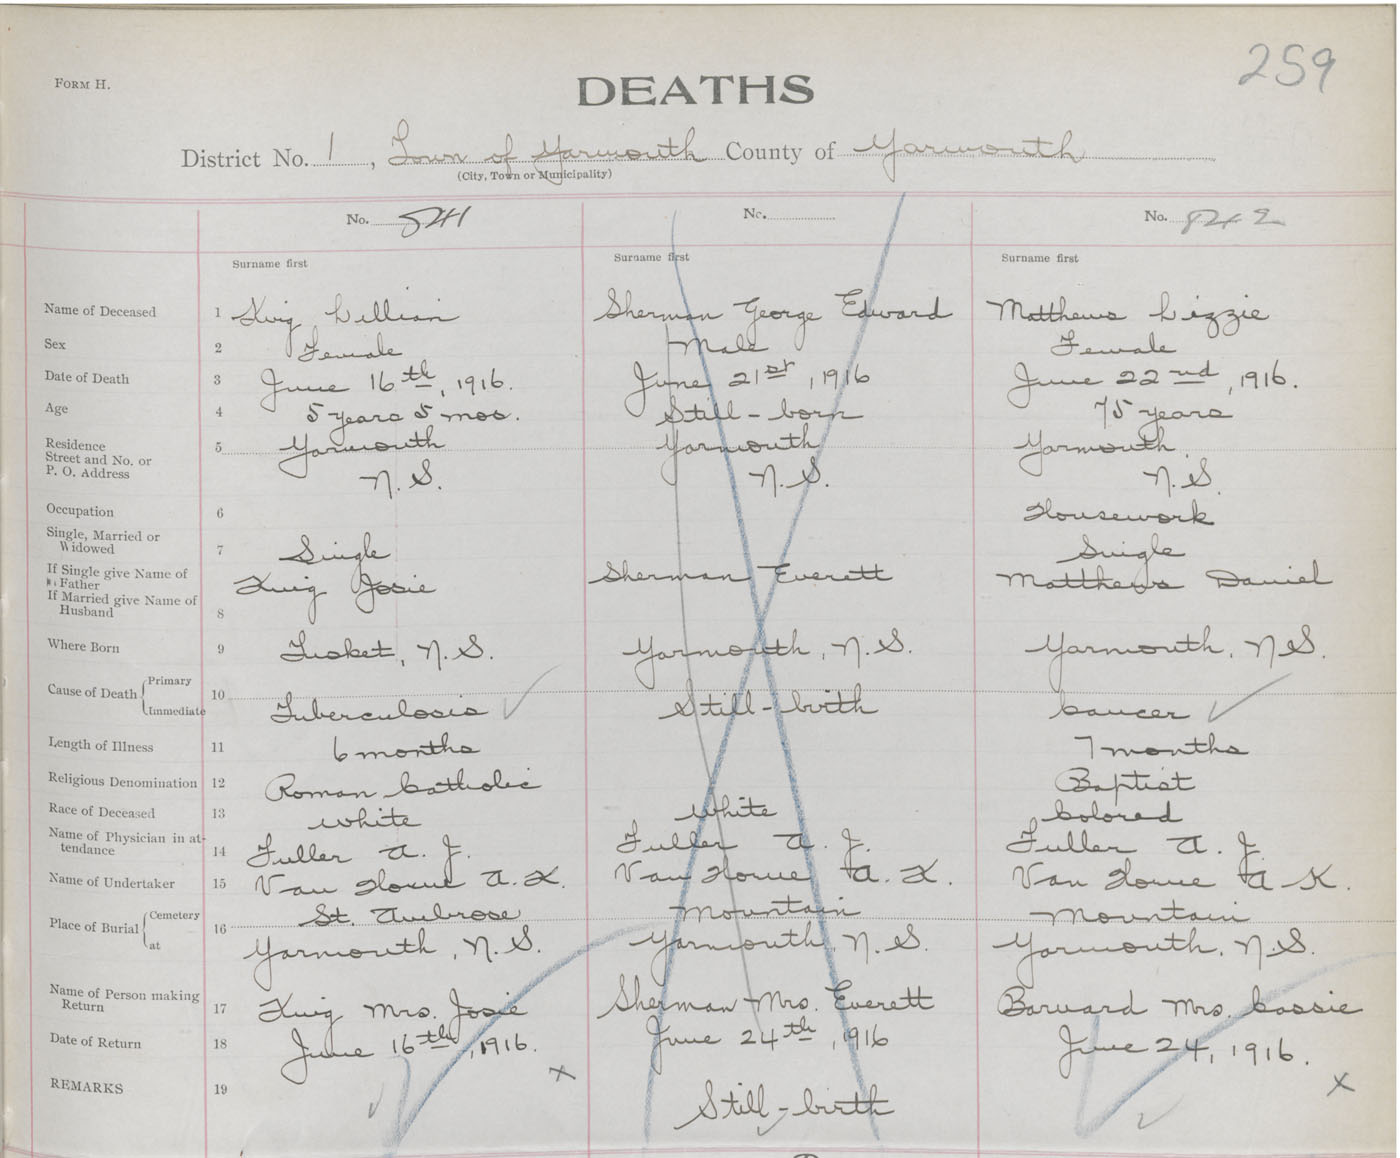 259
FORM H.
DEATHS
District No. 1, Town of Yarmouth County of Yarmouth
(City, Town or Municipality)
No. 841 No. No. 842
Surname first Surname first Surname first
Name of Deceased 1 King Lillian Sherman George Edward Matthews Lizzie
Sex 2 Female Male Female
Date of Death 3 June 16th, 1916. June 21st, 1916 June 22nd, 1916.
Age 4 5 years 5 mos. Still-born 75 years
Residence Street and No. or P. O. Address 5 Yarmouth Yarmouth Yarmouth
N.S. N.S. N.S.
Occupation 6 Housework
Single, Married or Widowed 7 Single Single
If Single give Name of Father King Josie Sherman Everett Matthews Daniel
If Married give Name of Husband 8
Where Born 9 Tusket, N.S. Yarmouth, N.S. Yarmouth, N.S.
Cause of Death { Primary
Immediate 10 Tuberculosis Still-birth Cancer
Length of Illness 11 6 months 7 months
Religious Denomination 12 Roman Catholic Baptist
Race of Deceased 13 White White Colored
Name of Physician in attendance 14 Fuller A. J. Fuller A. J. Fuller A. J.
Name of Undertaker 15 Van Horne A. K. Van Horne A. K. Van Horne A. K.
Place of Burial { Cemetery 16 St. Ambrose Mountain Mountain
at Yarmouth, N.S. Yarmouth, N.S. Yarmouth, N.S.
Name of Person making Return 17 King Mrs. Josie Sherman Mrs. Everett Barnard Mrs. Cassie
Date of Return 18 June 16th, 1916. June 24th, 1916 June 24, 1916.
REMARKS 19 x Still-birth x